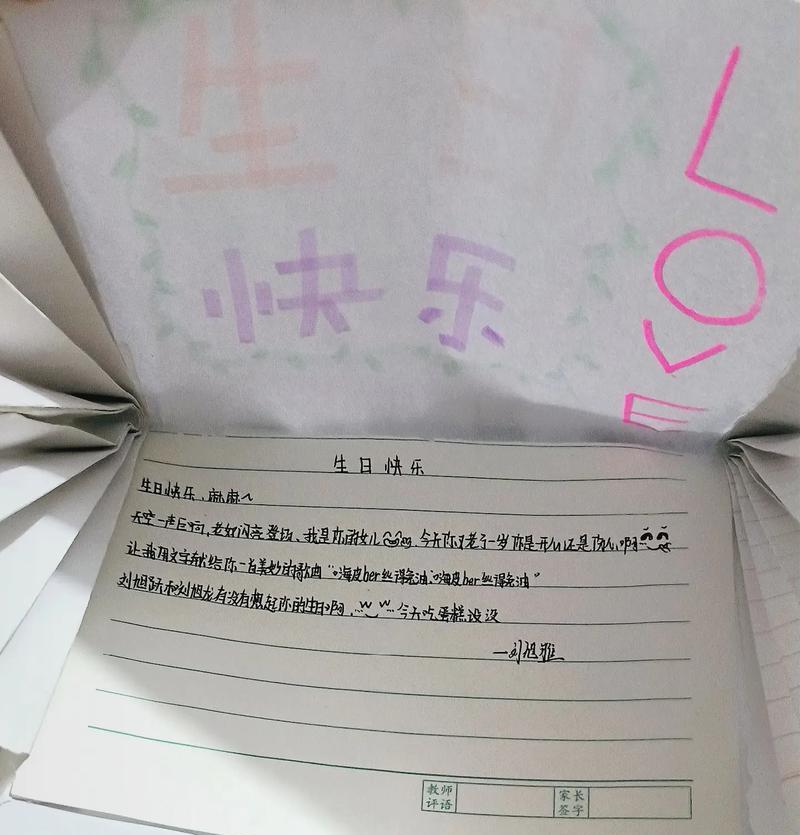 生日
快乐
LOVE
生日快乐
生日快乐，麻麻～
天空一声巨响，老奴闪亮登场、我是你的女儿 今天你又老了一岁你是开心还是伤心啊
让我用文字献给你一首美妙的歌曲“嗨皮ber丝得兔油，嗨皮ber丝得兔油”
刘旭跃和刘旭龙有没有想起你的生日啊， 今天吃蛋糕没没
—刘旭雅
教师评语 家长签字